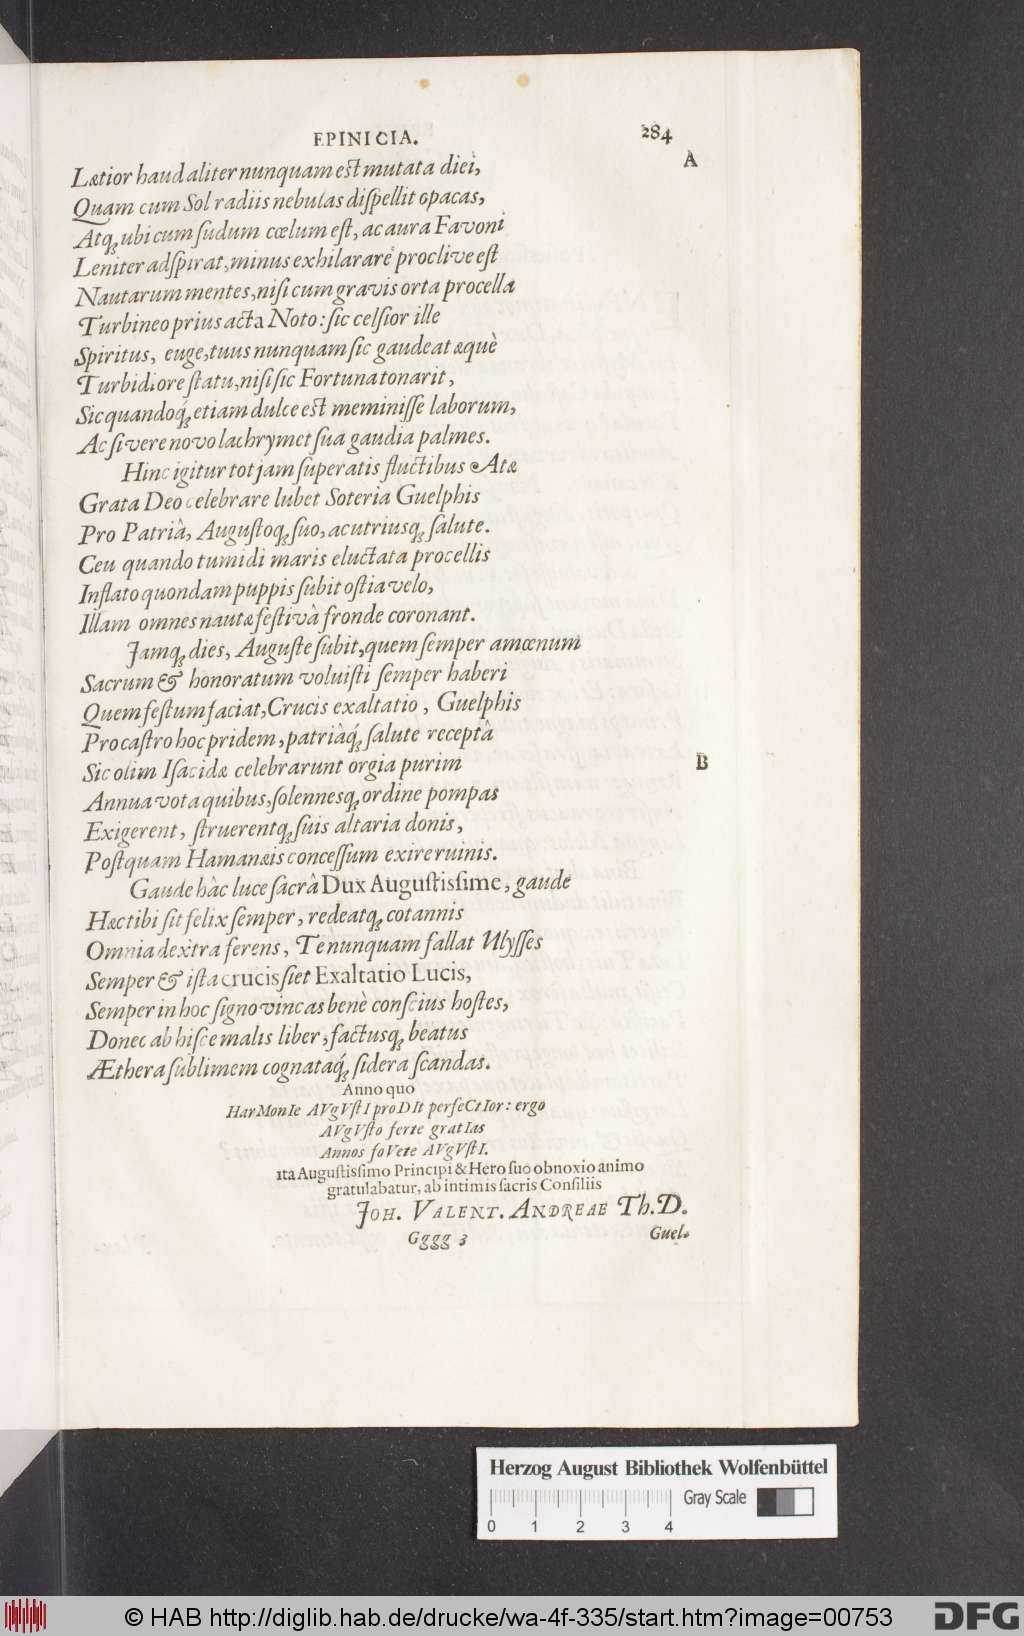 EPINICIA. 284
A
Lætior haud aliter nunquam est mutata diei,
Quam cum Sol radiis nebulas diſpellit opacas,
Atq; ubi cum ſudum cœlum eſt, ac aura Favonî
Leniter adſpirat, minus exhilarare proclive eſt
Nautarum mentes, niſi cum gravis orta procella
Turbine o prius acta Noto: ſic celſior ille
Spiritus, euge, tuus nunquam ſic gaudeat æquè
Turbidiore ſtatu, niſi ſic Fortuna tonarit,
Sic quandoq́; etiam dulce est meminiſſe laborum,
Ac ſi vere novo lachrymet ſua gaudia palmes.
Hinc igitur tot jam ſuperatis fluctibus Atæ
Grata Deo celebrare lubet Soteria Guelphis
Pro Patriâ, Auguſtoq; ſuo, ac utriusq; ſalute.
Ceu quando tumidi maris eluctata procellis
Inflato quondam puppis ſubit oſtia velo,
Illam omnes nautæ feſtivâ fronde coronant.
Jamq; dies, Auguſte ſubit, quem ſemper amœnum
Sacrum & honoratum voluiſti ſemper haberi
Quem feſtum faciat, Crucis exaltatio, Guelphis
Pro caſtro hoc pridem, patriàq́; ſalute receptâ
Sic olim Iſacidæ celebrarunt orgia purim
B
Annua vota quibus, ſolennesq; ordine pompas
Exigerent, ſtruerentq; ſuis altaria donis,
Poſtquam Hamanæis conceſſum exire ruinis.
Gaude hâc luce ſacrâ Dux Auguſtisſime, gaude
Hæc tibi ſit felix ſemper, redeatq; cotannis
Omnia dextra ferens, Te nunquam fallat Ulyſſes
Semper & iſta crucis ſiet Exaltatio Lucis,
Semper in hoc ſigno vincas benè conſcius hoſtes,
Donec ab hiſce malis liber, factusq; beatus
Æthera ſublimem cognataq́; ſidera ſcandas.
Anno quo
HarMonIe AVgVſtI proDIt perfeCtIor: ergo
AVgVſto ferte gratIas
Annos foVete AVgVſtI.
ita Auguſtisſimo Principi & Hero ſuo obnoxio animo
gratulabatur, ab intimis ſacris Conſiliis
JOH. VALENT. ANDREAE Th. D.
Gggg 3 Guel-
Herzog August Bibliothek Wolfenbüttel
Gray Scale
0 1 2 3 4
© HAB http://diglib.hab.de/drucke/wa-4f-335/start.htm?image=00753
DFG